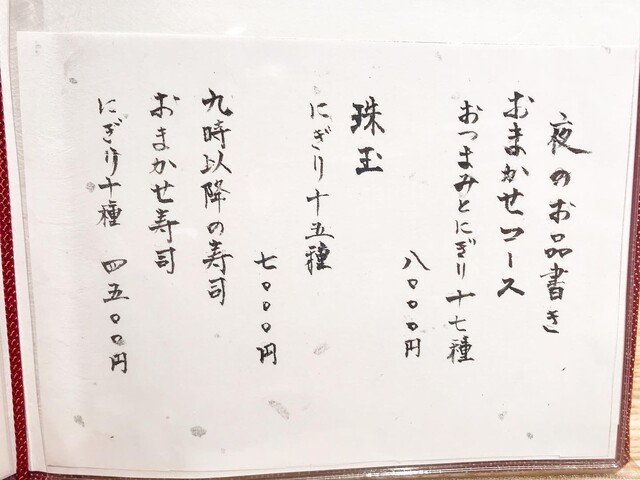 夜のお品書き
おまかせコース
おつまみとにぎり十七種
八〇〇〇円
珠玉
にぎり十五種
七〇〇〇円
九時以降の寿司
おまかせ寿司
にぎり十種 四五〇〇円